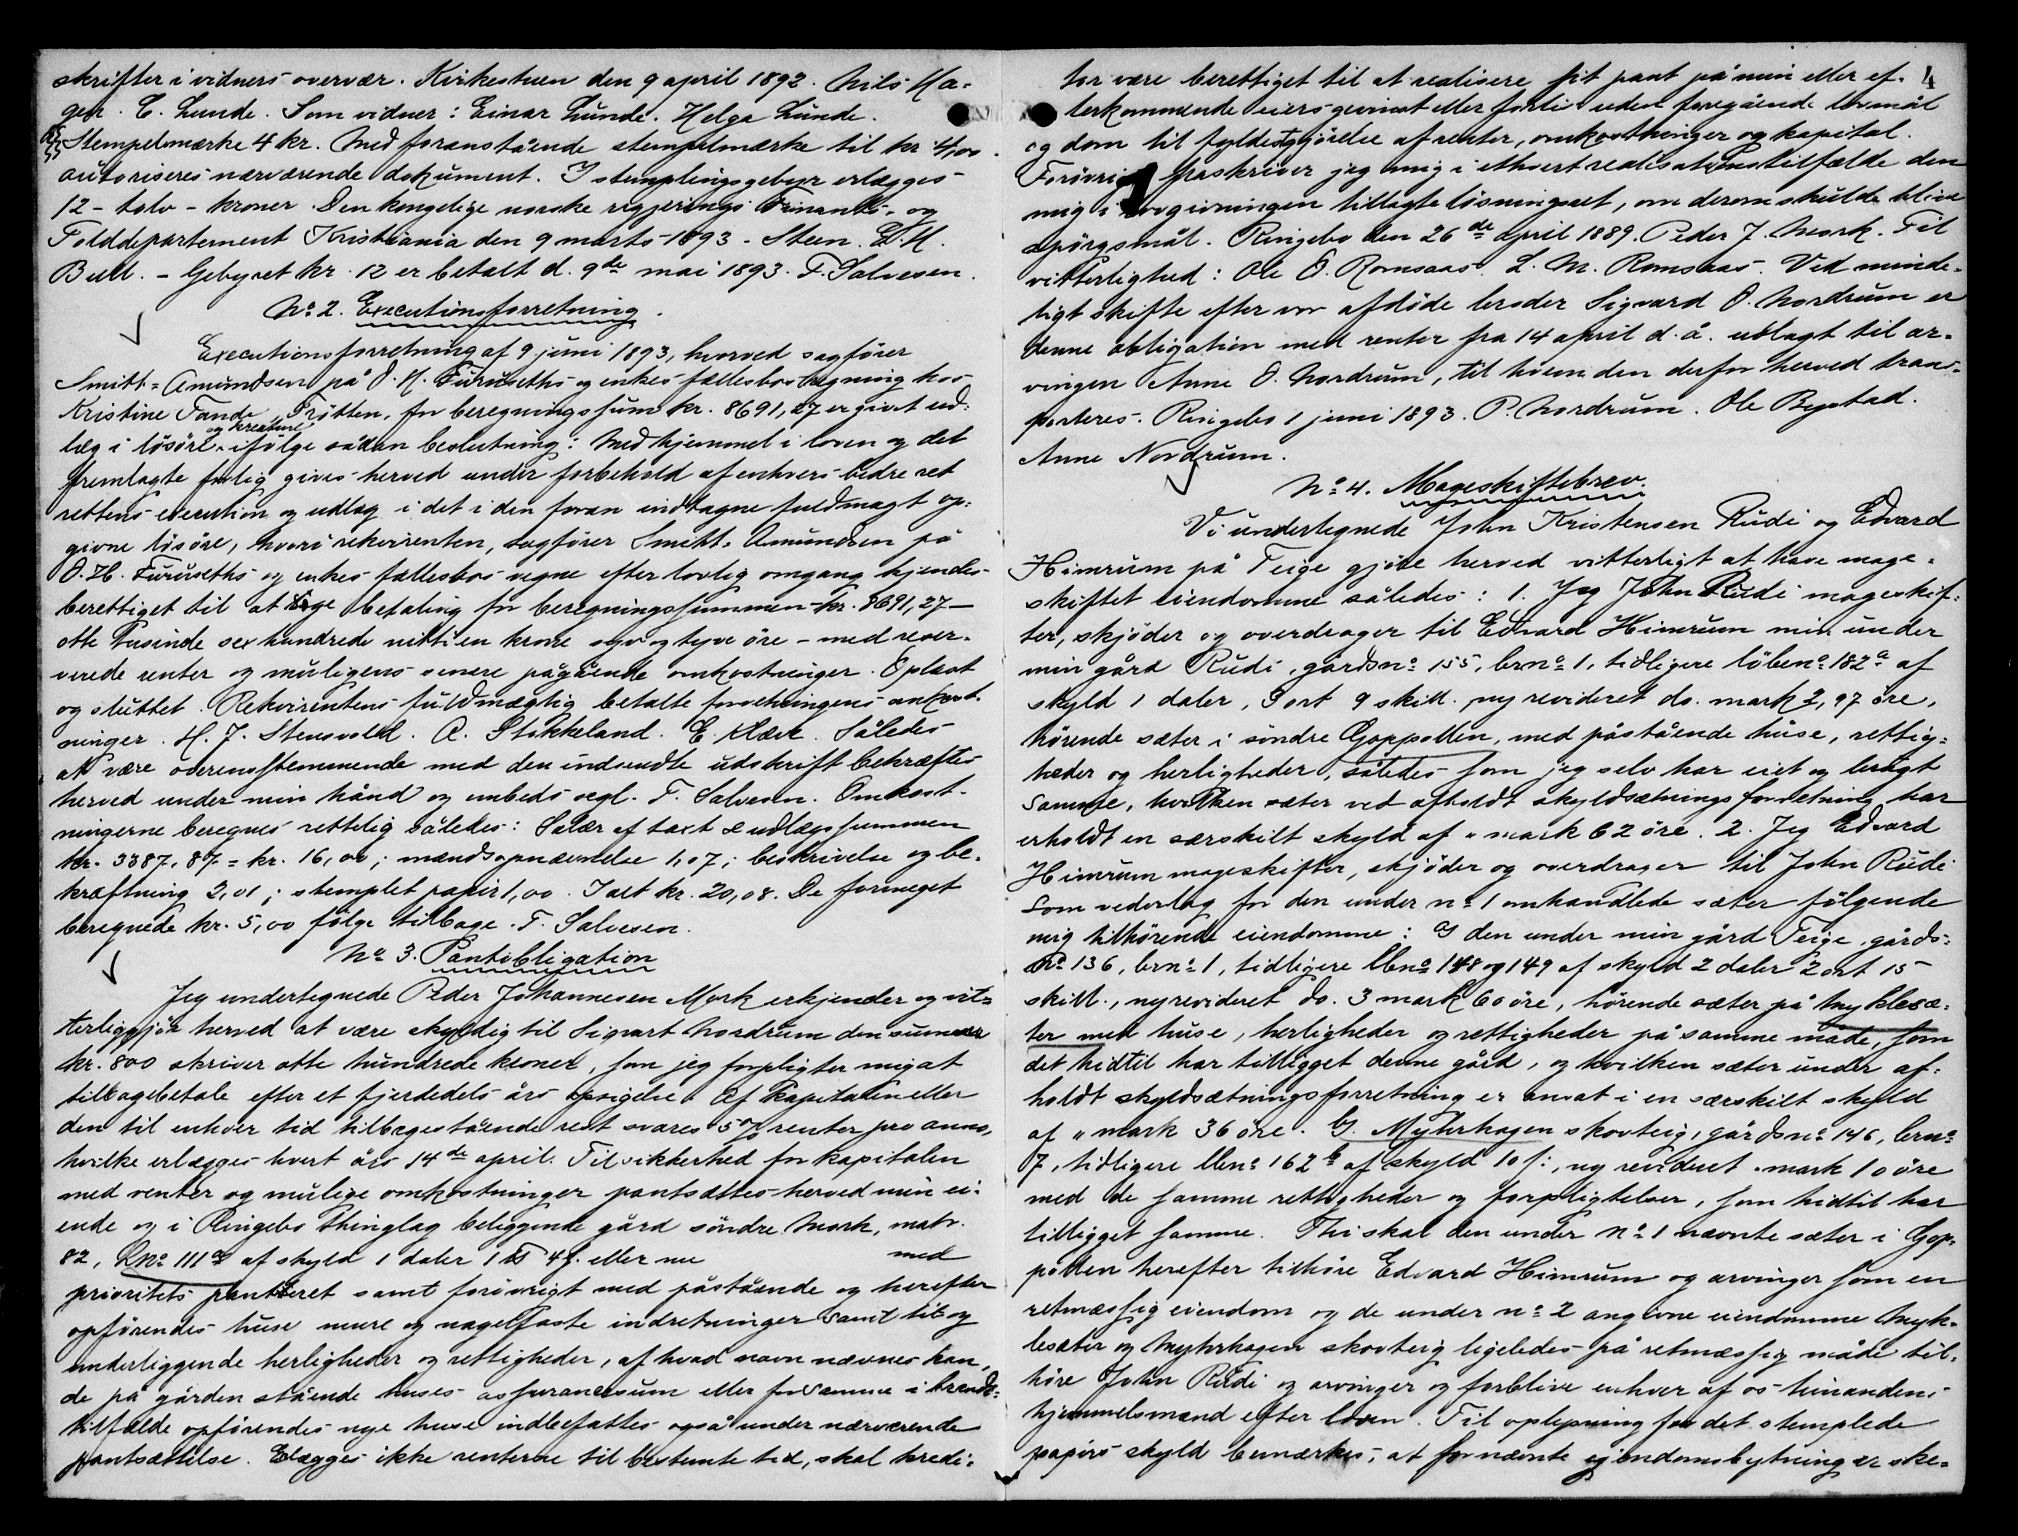 skrifter i vidners overvær. Kirkestuen den 9 april 1892. Nils Ha-
ger. E. Lunde. Som vidner: Einar Lunde. Helga Lunde.
Stempelmærke 4 kr. Med foranstående stempelmærke til kr 4,00
autoriseres nærværende dokument. I stemplingsgebyr erlægges
12 – tolv – kroner. Den kongelige norske regjerings Finants- og
Tolddepartement Kristiania den 9 marts 1893. Steen. E. H.
Bull. – Gebyret kr. 12 er betalt d. 9de mai 1893. F. Salvesen.
No 2. Executionsforretning.
Executionsforretning af 9 juni 1893, hvorved sagfører
Smitt-Amundsen på O. H. Furuseths og enkes fællesbos regning hos
Kristine Fande, Trötten, for beregningssum kr. 8691,27 er givet ud-
læg i lösöre og kreature ifölge sådan beslutning: Med hjemmel i loven og det
fremlagte forlig gives herved under forbehold af enhvers bedre ret
rettens execution og udlæg i det i den foran indtagne fuldmagt op-
givne lösöre, hvori rekvirenten, sagfører Smitt-Amundsen på
O. H. Furuseths og enkes fællesbos vegne efter lovlig omgang kjendes
berettiget til at søge betaling for beregningssummen kr. 8691,27 –
otte tusinde sex hundrede nitti en krone syv og tyve öre – med reser-
verede renter og muligens senere pågående omkostninger. Oplæst
og sluttet. Rekvirentens fuldmægtig betalte forretningens omkost-
ninger. H. J. Stensvold. A. Stokkeland. E. Klæve. Således
at være overensstemmende med den indsendte udskrift bekræftes
herved under min hånd og embeds segl. F. Salvesen. Omkost-
ningerne beregnes rettelig således: Salær af taxt & udlægssummen
kr. 3387,87 = kr. 16,00; mændsopnævnelse 1,07; beskrivelse og be-
kræftning 2,01; stemplet papir 1,00. Ialt kr. 20,08. De formeget
beregnede kr. 5,00 følge tilbage. F. Salvesen.
No 3. Pantobligation
Jeg undertegnede Peder Johannesen Mork erkjender og vit-
terliggjör herved at være skyldig til Sigvart Nordrum den summa
kr. 800 skriver otte hundrede kroner, som jeg forpligter mig at
tilbagebetale efter et fjerdedels års opsigelse. Af kapitalen eller
den til enhver tid tilbagestående rest svares 5% renter pro anno,
hvilke erlægges hvert års 14de april. Til sikkerhed for kapitalen
med renter og mulige omkostninger pantsættes herved min ei-
ende og i Ringebo thinglag beliggende gård söndre Mork, matr.
82, Lno 111a af skyld 1 daler 1 ort 4 s. eller nu med
prioritets panteret samt forövrigt med påstående og herefter
opførendes huse mure og nagelfaste indretninger samt til og
underliggende herligheder og rettigheder, af hvad navn nævnes kan,
de på gården stående huses assurancesum eller for samme i brands-
tilfælde opførendes nye huse indbefattes også under nærværende
pantsættelse. Elægges ikke renterne til bestemte tid, skal kredi-
4
tor være berettiget til at realisere sit pant på min eller ef-
terkommende eiers gevinst eller forlis uden foregående lovmål
og dom til fyldestgjörelse af renter, omkostninger og kapital.
fraskriver jeg mig i ethvert realisationstilfælde den
mig i lovgivningen tillagte lösningsret, om derom skulde blive
spörgsmål. Ringebo den 26de april 1889. Peder J. Mork. Til
vitterlighed: Ole O. Romsaas. L. M. Romsaas. Ved minde-
ligt skifte efter vor afdöde broder Sigvard O. Nordrum er
denne obligation med renter fra 14 april d. å. udlagt til ar-
vingen Anne O. Nordrum, til hvem den derfor herved trans-
porteres. Ringebo 1 juni 1893. P. Nordrum. Ole Bystad.
Anne Nordrum.
No 4. Mageskiftebrev.
Vi undertegnede John Kristensen Rudi og Edvard
Himrum på Teige gjöre herved vitterligt at have mage-
skiftet eiendomme således: 1. Jeg John Rudi mageskif-
ter, skjöder og overdrager til Edvard Himrum min under
min gård Rudi, gårdsno 155, brno 1, tidligere löbeno 182a af
skyld 1 daler, 3 ort 9 skill. ny revideret do. mark 2,97 öre,
hörende sæter i söndre Goppollen, med påstående huse, rettig-
heder og herligheder, således som jeg selv har eiet og brugt
samme, hvilken sæter ved afholdt skyldsætningsforretning har
erholdt en særskilt skyld af " mark 62 öre. 2. Jeg Edvard
Himrum mageskifter, skjöder og overdrager til John Rudi
som vederlag for den under no 1 omhandlede sæter følgende
mig tilhörende eiendomme: I den under min gård Teige, gårds-
no 136, brno 1, tidligere lbno 148 og 149 af skyld 2 daler 2 ort 15
skill., nyrevideret do. 3 mark 60 öre, hörende sæter på Myklesæ-
ter med huse, herligheder og rettigheder på samme måde, som
det hidtil har tilligget denne gård, og hvilken sæter under af-
holdt skyldsætningsforretning er ansat i en særskilt skyld
af " mark 36 öre. Myhrhagen skovteig, gårdsno 146, brno
7, tidligere lbno 162b af skyld 10 s:, ny revideret " mark 10 öre
med de samme rettigheder og forpligtelser, som hidtil har
tilligget samme. Thi skal den under no 1 nævnte sæter i Gop-
pollen herefter tilhöre Edvard Himrum og arvinger som en
retmæssig eiendom og de under no 2 angivne eiendomme Myk-
lesæter og Myhrhagen skovteig ligeledes på retmæssig måde til-
höre John Rudi og arvinger og forblive enhver af os hinandens
hjemmelsmænd efter loven. Til oplysning for det stemplede
papirs skyld bemærkes, at fornævnte ejendomsbytning er ske-